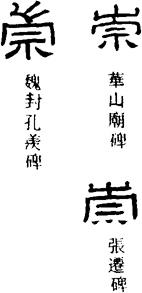 崇
華山廟碑
崇
張遷碑
崇
魏封孔羨碑